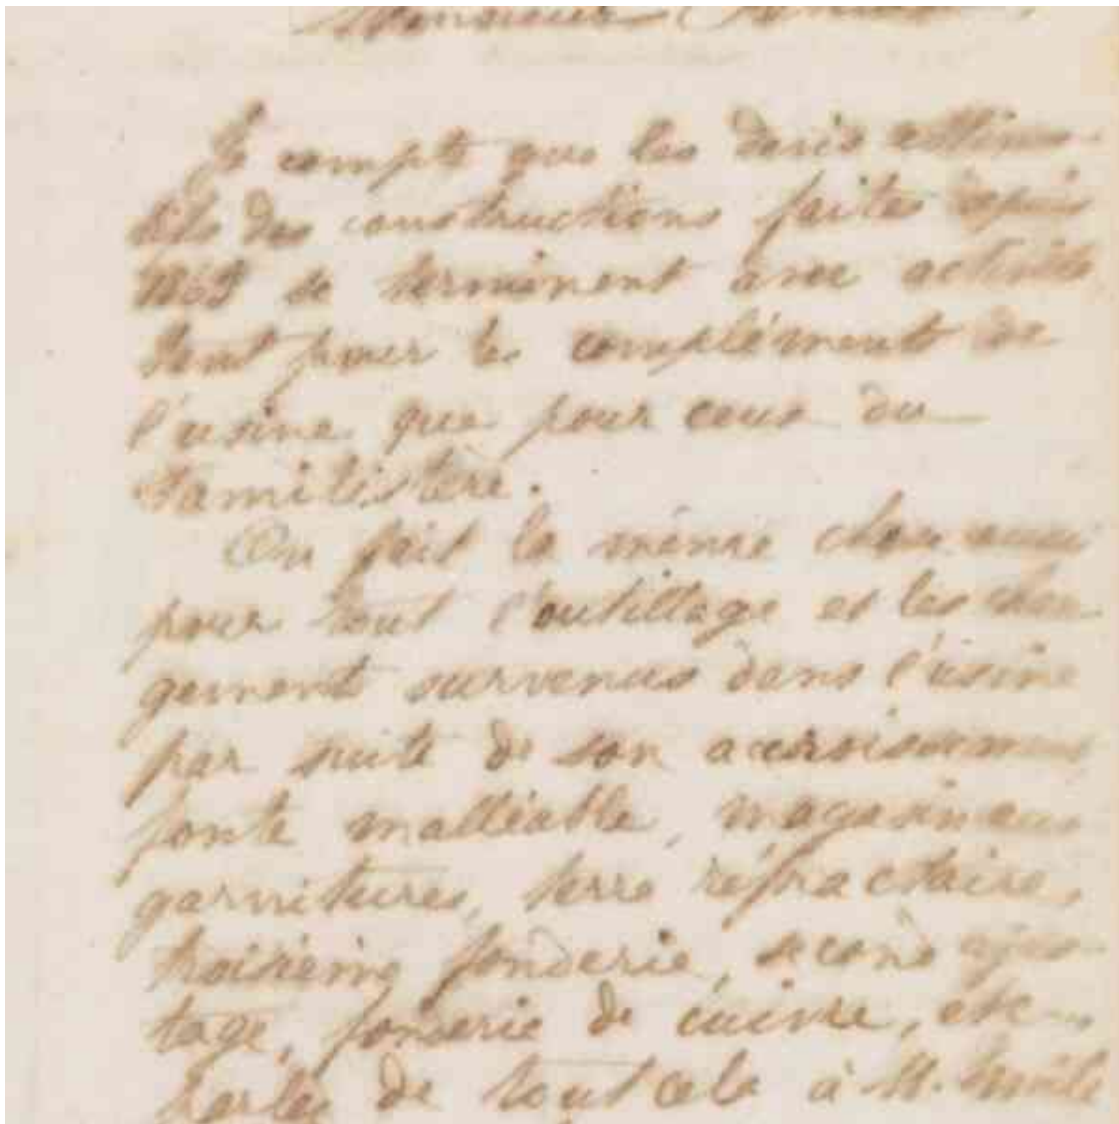 Monsieur
Je compte que les devis estima-
tifs des constructions faites depuis
se terminent avec activité
tant pour le complément de
l'usine que pour ceux du
familistère.
On fait la même chose aussi
pour tout l'outillage et les chan
gements survenus dans l'usine
par suite de son accroissement
fonte malléable, magasin aux
garnitures, terre réfractaire,
troisième fonderie, second ajus-
tage, fonderie de cuivre, etc..
Parlez de tout cela à M.